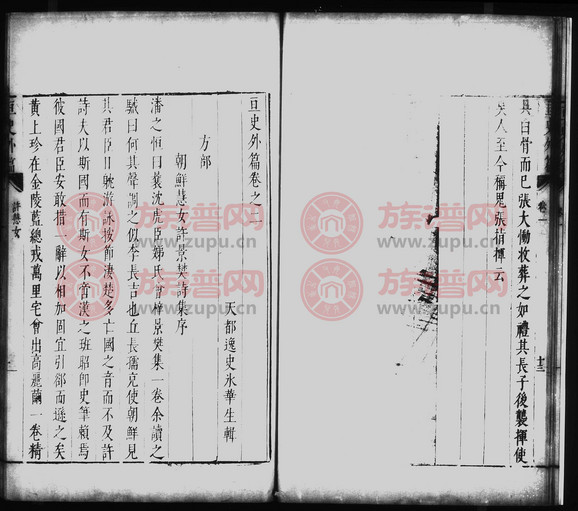 具曰骨而已張大慟收葬之如禮其長子後襲揮使
吳人至今稱鬼張指揮云
亘史外篇卷之二
天都逸史冰華生輯
方部
朝鮮慧女許景樊詩集序
潘之恒曰襄沈虎臣
氏
景樊集一卷余讀之
駴曰何其聲調之似李長吉也丘長孺
使朝鮮見
其君臣日
游詠按節凄楚多亡國之音而不及許
詩夫以斯國而有斯女不啻漢之班昭即史筆賴焉
彼國君臣安敢措一辭以相加固宜引
而遜之矣
黃上珍在金陵藍總戎萬里宅會出高麗繭一卷精
亘史外篇
許慧女
卷一
族谱网
www.zupu.cn
族谱网
www.zupu.cn
族谱网
www.zupu.cn
族谱网
www.zupu.cn